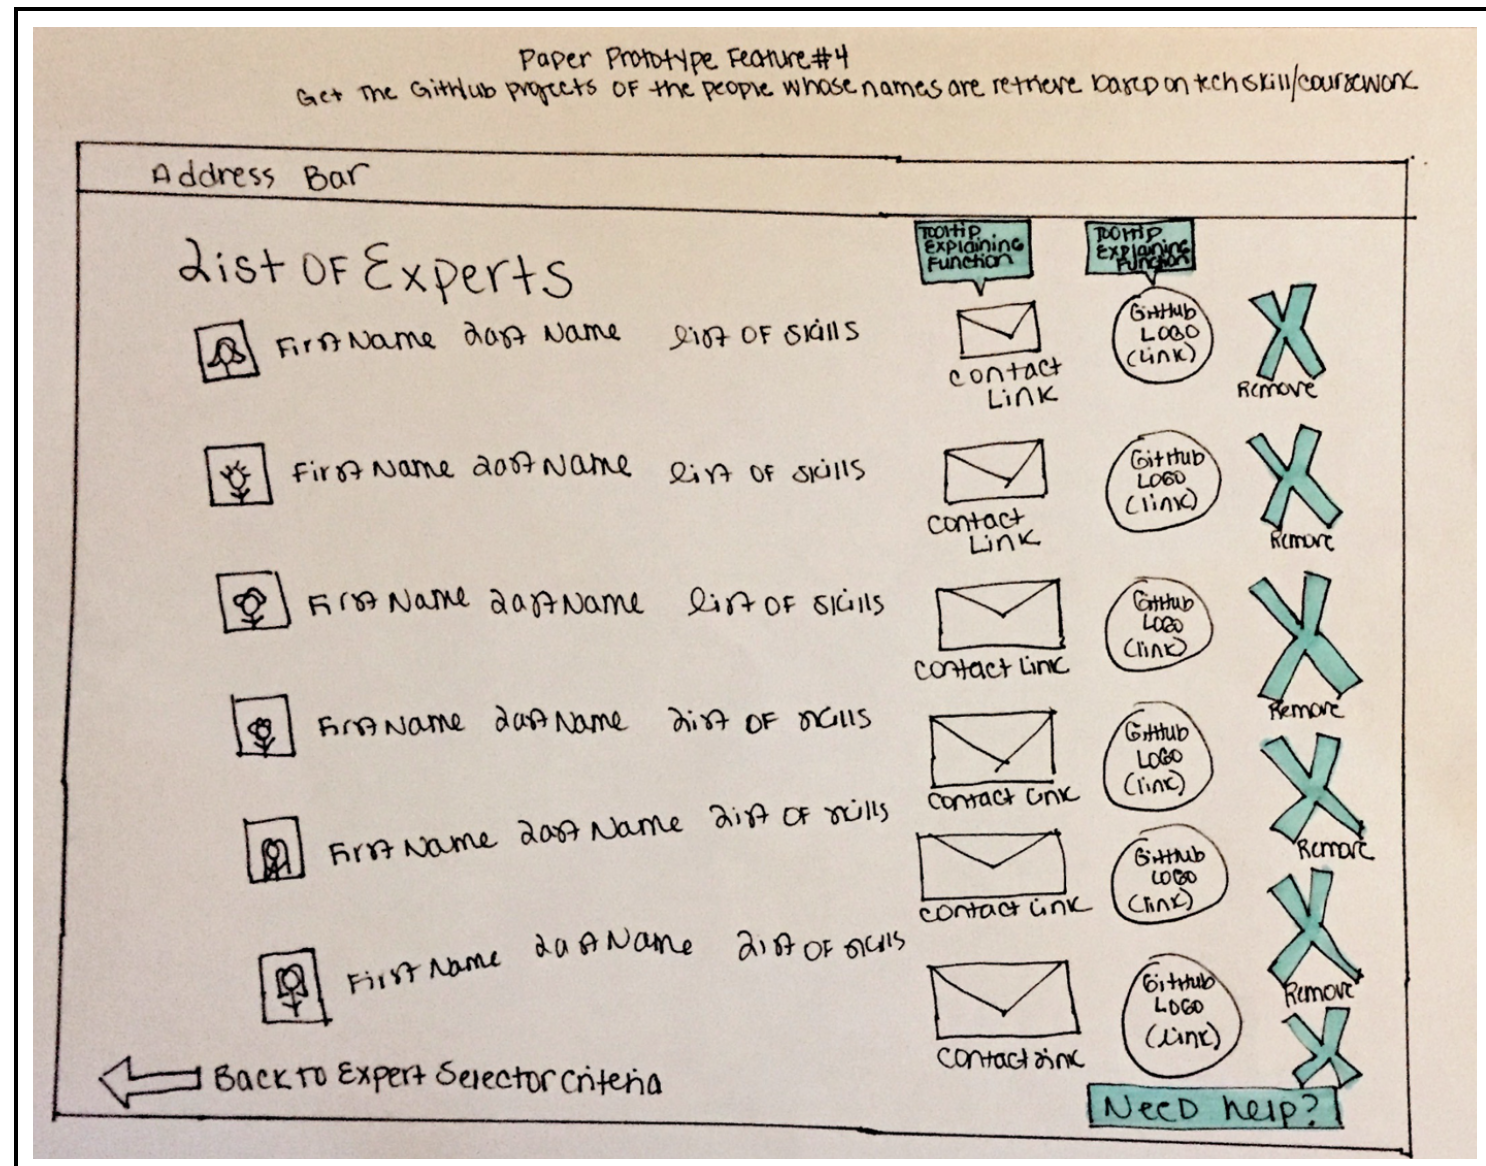 Paper Prototype Feature#4
Get The GitHub projects OF the people whose names are retrieve based on tech skill/coursework
Address Bar
List OF Experts
Tooltip
Explaining
Function
Tooltip
Explaining
Function
First Name Last Name list OF skills
contact
Link
GitHub
LOGO
(Link)
Remove
First Name Last Name list OF skills
contact
Link
GitHub
LOGO
(link)
Remove
First Name Last Name list OF skills
contact Link
GitHub
LOGO
(link)
Remove
First Name Last Name List OF skills
contact Link
GitHub
LOGO
(link)
Remove
First Name Last Name List OF skills
contact Link
GitHub
LOGO
(link)
Remove
First Name Last Name List OF skills
contact Link
GitHub
LOGO
(Link)
Back To Expert Selector Criteria
Need help?